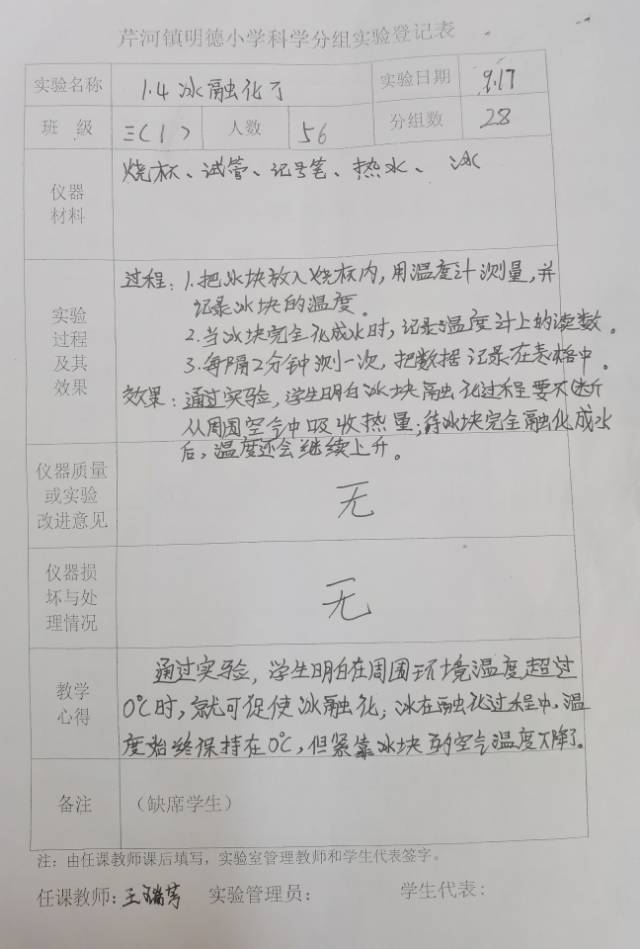 芹河镇明德小学科学分组实验登记表
实验名称 1.4 冰融化了 实验日期 9.17
班 级 三(1) 人数 56 分组数 28
仪器材料 烧杯、试管、记号笔、热水、冰
实验过程及其效果
过程：1.把冰块放入烧杯内，用温度计测量，并
记录冰块的温度。
2.当冰块完全化成水时，记录温度计上的读数。
3.每隔2分钟测一次，把数据记录在表格中。
效果：通过实验，学生明白冰块融化过程要不断
从周围空气中吸收热量；待冰块完全融化成水
后，温度还会继续上升。
仪器质量或实验改进意见 无
仪器损坏与处理情况 无
教学心得
通过实验，学生明白在周围环境温度超过
0℃时，就可促使冰融化；冰在融化过程中，温
度始终保持在0℃，但紧靠冰块的空气温度下降了。
备注 （缺席学生）
注：由任课教师课后填写，实验室管理教师和学生代表签字。
任课教师：王瑞芳 实验管理员： 学生代表：